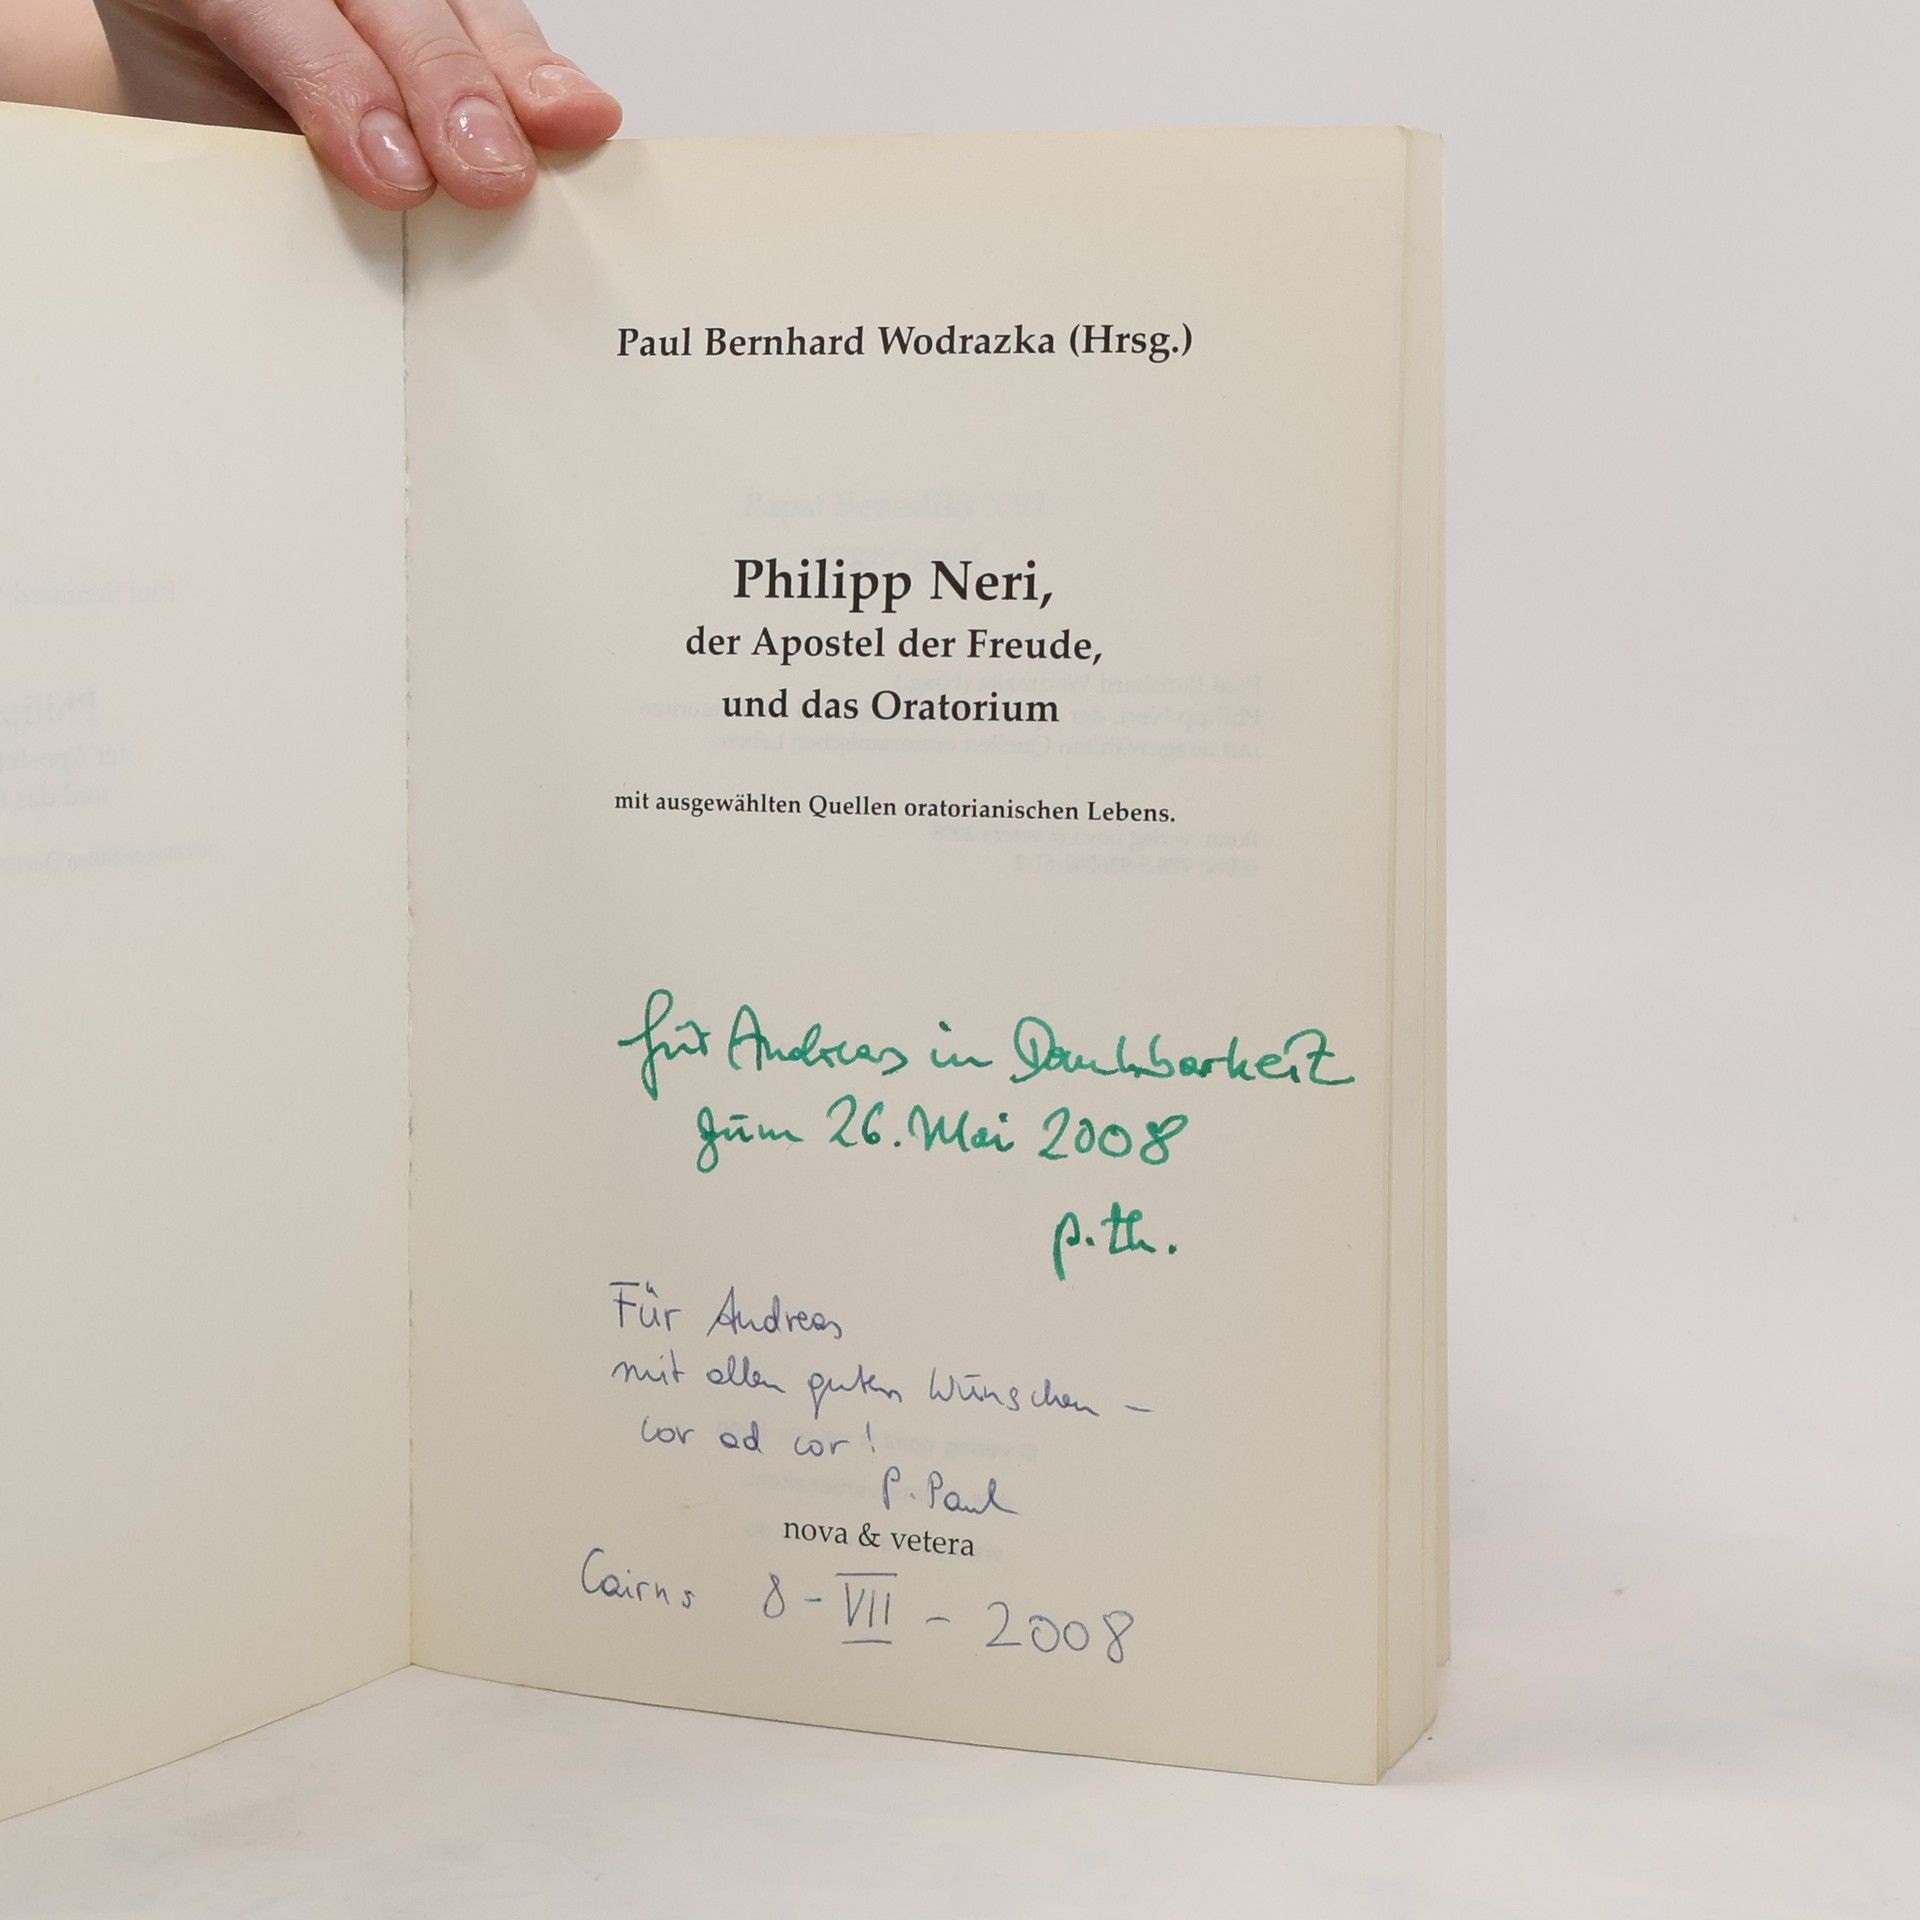 Paul Bernhard Wodrazka (Hrsg.)
Philipp Neri,
der Apostel der Freude,
und das Oratorium
mit ausgewählten Quellen oratorianischen Lebens.
für Andreas in Dankbarkeit
zum 26. Mai 2008
p. th.
Für Andreas
mit allen guten Wünschen –
cor ad cor!
P. Paul
nova & vetera
Cairns 8 - VII - 2008